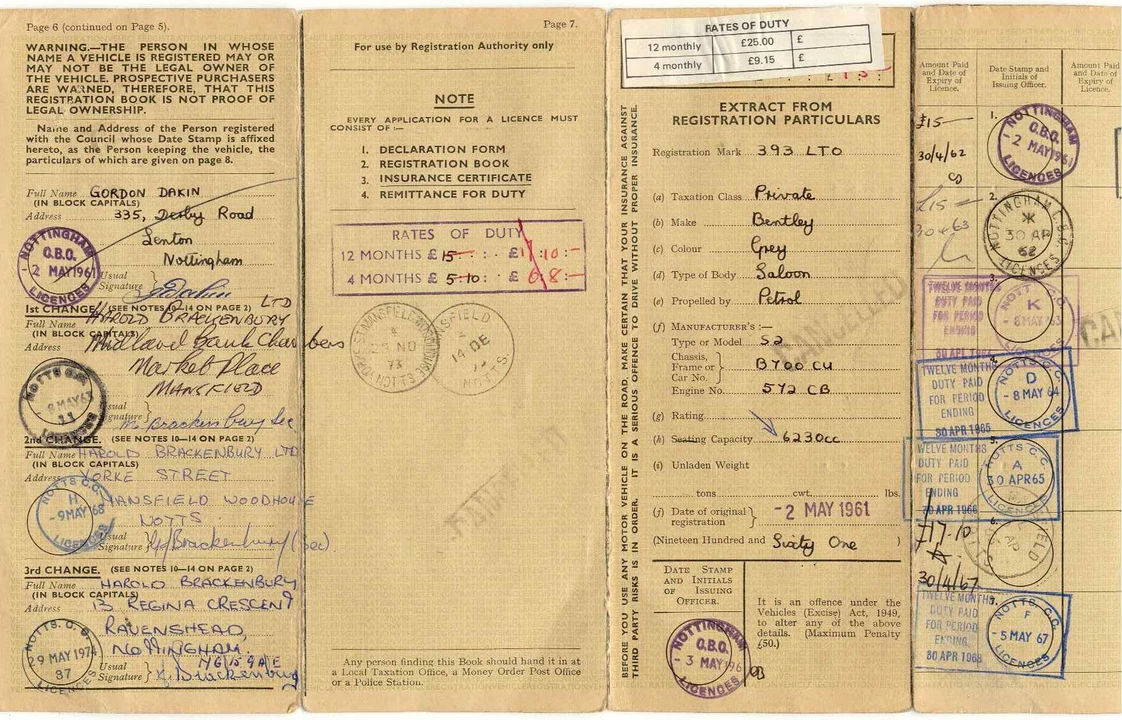 Page 6 (continued on Page 5).
WARNING.—THE PERSON IN WHOSE
NAME A VEHICLE IS REGISTERED MAY OR
MAY NOT BE THE LEGAL OWNER OF
THE VEHICLE. PROSPECTIVE PURCHASERS
ARE WARNED, THEREFORE, THAT THIS
REGISTRATION BOOK IS NOT PROOF OF
LEGAL OWNERSHIP.
Name and Address of the Person registered
with the Council whose Date Stamp is affixed
hereto, as the Person keeping the vehicle, the
particulars of which are given on page 8.
Full Name GORDON DAKIN
(IN BLOCK CAPITALS)
Address 335, Derby Road
Lenton
Nottingham
NOTTINGHAM
C.B.C.
2 MAY 1961
LICENCES
Usual
Signature G Dakin
1st CHANGE. (SEE NOTES 10-14 ON PAGE 2) LTD
Full Name HAROLD BRACKENBURY
(IN BLOCK CAPITALS)
Address Midland Bank Chambers
Market Place
MANSFIELD
8 MAY 63
Usual
Signature Brackenbury Sec
2nd CHANGE. (SEE NOTES 10—14 ON PAGE 2)
Full Name HAROLD BRACKENBURY LTD
(IN BLOCK CAPITALS)
Address YORKE STREET
MANSFIELD WOODHOUSE
NOTTS
NOTTS C.C.
H
- 9 MAY 68
LICENCES
Usual
Signature Brackenbury (Sec).
3rd CHANGE. (SEE NOTES 10-14 ON PAGE 2)
Full Name HAROLD BRACKENBURY
(IN BLOCK CAPITALS)
Address 13 REGINA CRESCENT
RAVENSHEAD,
NOTTINGHAM.
NG15 9AE
NOTTS. C.C.
29 MAY 1974
87
LICENCES
Usual
Signature Brackenbury
Page 7.
For use by Registration Authority only
NOTE
EVERY APPLICATION FOR A LICENCE MUST
CONSIST OF :—
1. DECLARATION FORM
2. REGISTRATION BOOK
3. INSURANCE CERTIFICATE
4. REMITTANCE FOR DUTY
RATES OF DUTY
12 MONTHS £ 15 — : £17.10:—
4 MONTHS £ 5-10 : £6.8:—
MANSFIELD WOODHOUSE
NOTTS
73
MANSFIELD
14 DE
NOTTS.
CANCELLED
Any person finding this Book should hand it in at
a Local Taxation Office, a Money Order Post Office
or a Police Station.
BEFORE YOU USE ANY MOTOR VEHICLE ON THE ROAD, MAKE CERTAIN THAT YOUR INSURANCE AGAINST
THIRD PARTY RISKS IS IN ORDER. IT IS A SERIOUS OFFENCE TO DRIVE WITHOUT PROPER INSURANCE.
RATES OF DUTY
12 monthly £25.00 £
4 monthly £9.15 £
EXTRACT FROM
REGISTRATION PARTICULARS
Registration Mark 393 LTO
(a) Taxation Class Private
(b) Make Bentley
(c) Colour Grey
(d) Type of Body Saloon
(e) Propelled by Petrol
(f) MANUFACTURER'S :—
Type or Model S2
Chassis,
Frame or
Car No. B700 CU
Engine No. 572 CB
(g) Rating
(h) Seating Capacity 6230cc
(i) Unladen Weight
tons cwt. lbs.
(j) Date of original
registration - 2 MAY 1961
(Nineteen Hundred and Sixty One )
CANCELLED
DATE STAMP
AND INITIALS
OF ISSUING
OFFICER.
It is an offence under the
Vehicles (Excise) Act, 1949,
to alter any of the above
details. (Maximum Penalty
£50.)
NOTTINGHAM
C.B.C.
- 3 MAY 196
LICENCES
Amount Paid
and Date of
Expiry of
Licence.
Date Stamp and
Initials of
Issuing Officer.
Amount Paid
and Date of
Expiry of
Licence.
£15—
30/4/62
1.
NOTTINGHAM
C.B.C.
- 2 MAY 1961
LICENCES
£15—
2.
NOTTINGHAM C.B.C.
30 AP
62
LICENCES
3.
TWELVE MONTHS
DUTY PAID
FOR PERIOD
ENDING
30 APR
K
- 8 MAY 63
TWELVE MONTHS
DUTY PAID
FOR PERIOD
ENDING
30 APR 1965
NOTTS C.C.
D
- 8 MAY 64
LICENCES
5.
TWELVE MONTHS
DUTY PAID
FOR PERIOD
ENDING
30 APR 1966
NOTTS C.C.
A
30 APR 65
LICENCES
£17.10
30/4/67
6.
AP
TWELVE MONTHS
DUTY PAID
FOR PERIOD
ENDING
30 APR 1968
NOTTS C.C.
F
- 5 MAY 67
LICENCES